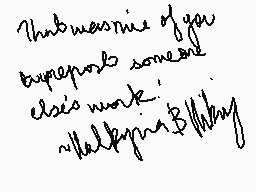 That was nice of you
to repost someone
else's work!